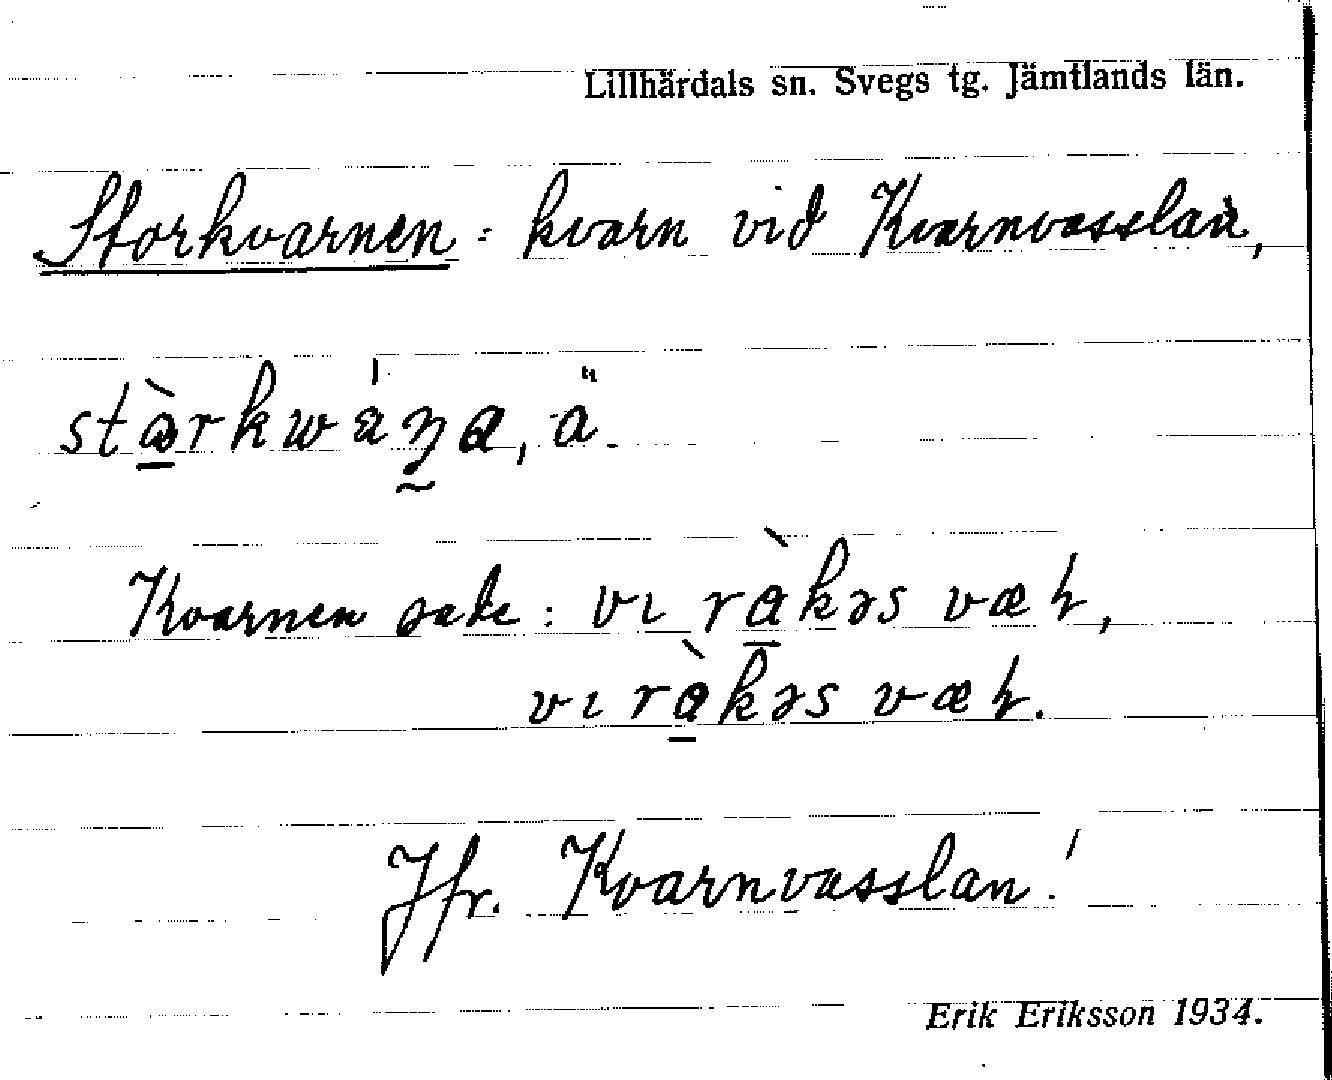 Lillhärdals sn. Svegs tg. Jämtlands län.
Storkvarnen: kvarn vid Kvarnvasslan,
stàrkwáɳa, ä.
Kvarnen sade: vı ràkəs væɫ,
vı ràkəs væɫ.
Jfr. Kvarnvasslan!
Erik Eriksson 1934.